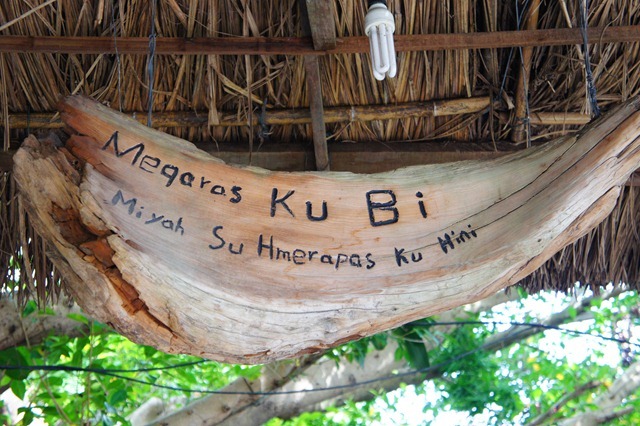 Meqaras Ku Bi
Miyah Su Hmerapas Ku Hini